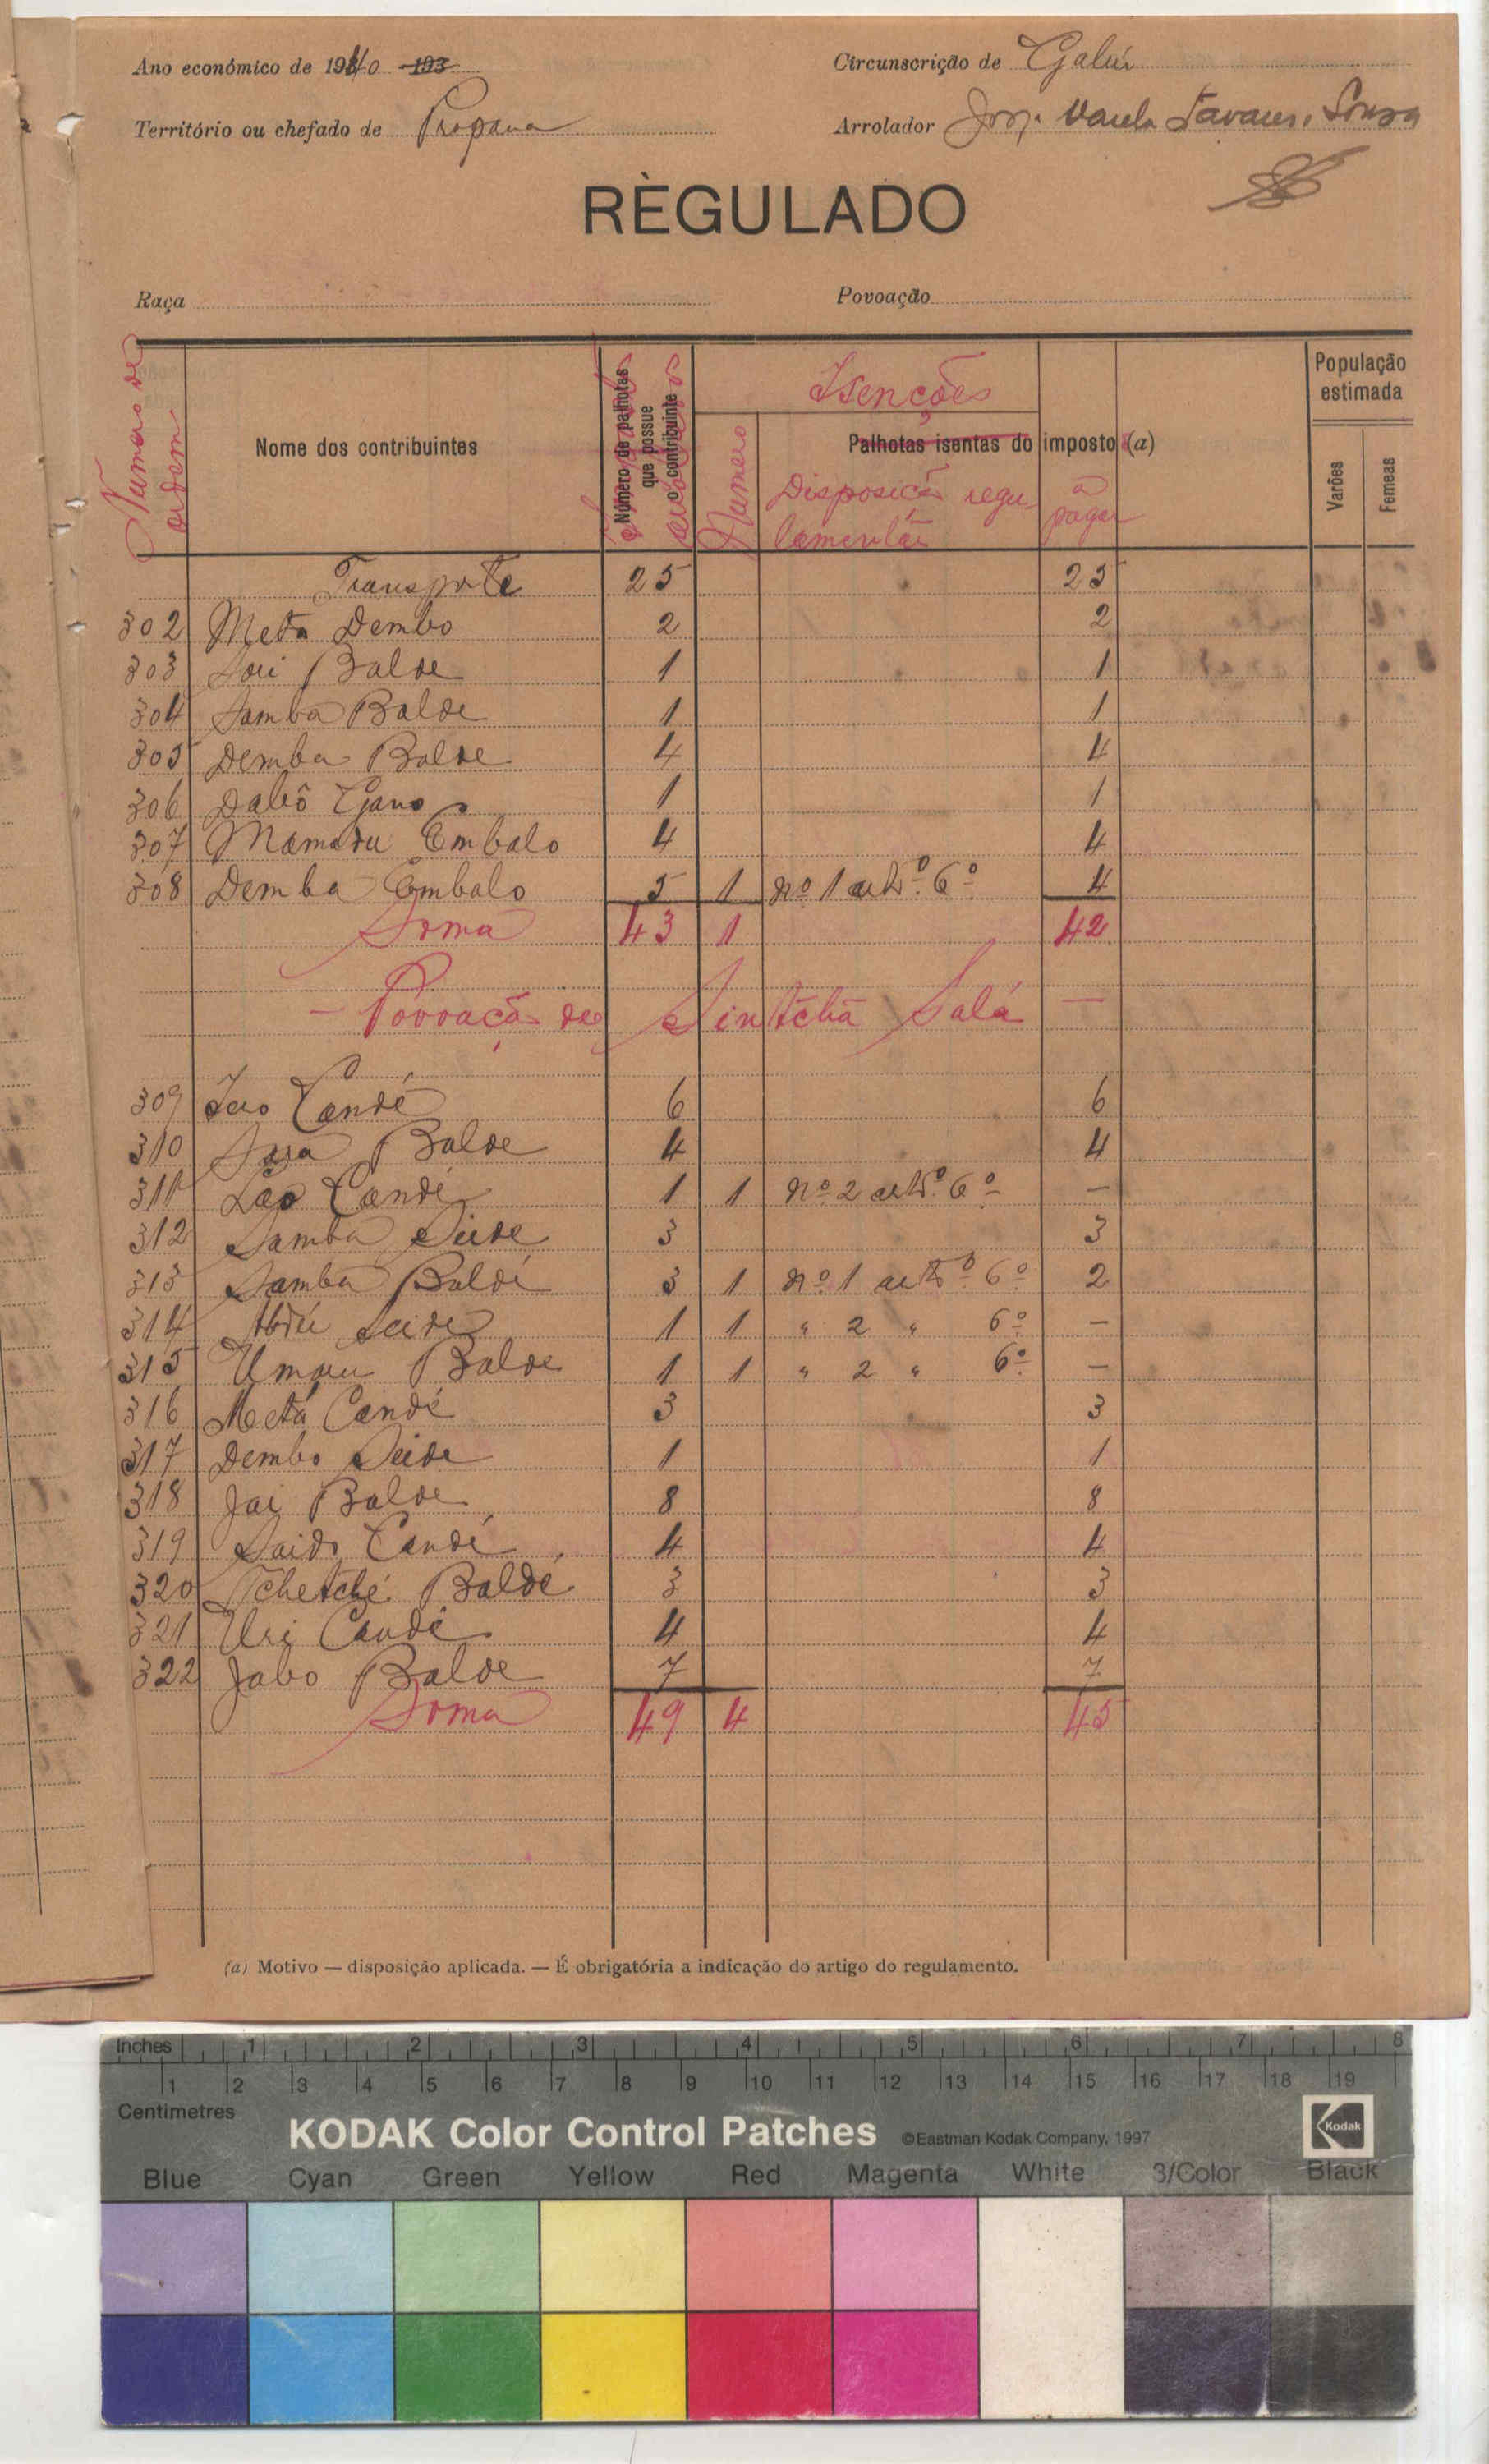 Ano económico de 1940 193
Circunscrição de Gabú
Território ou chefado de Propana
Arrolador Jorge Varela Tavares e Sousa
RÈGULADO
Raça
Povoação
Numero de ordem
Nome dos contribuintes
Número de palhotas que possue o contribuinte
Isenções
Numero
Palhotas isentas do imposto (a)
Disposição regulamentar
a pagar
População estimada
Varões
Femeas
Transporte 25 25
302 Meta Dembo 2 2
303 Sori Balde 1 1
304 Samba Balde 1 1
305 Demba Balde 4 4
306 Dabô Gano 1 1
307 Mamadu Embalo 4 4
308 Demba Embalo 5 1 nº 1 artº 6º 4
Soma 43 1 42
— Povoação de Sintchã Salá —
309 Candé 6 6
310 Balde 4 4
311 Candé 1 1 nº 2 artº 6º —
312 Samba Seide 3 3
313 Samba Baldé 3 1 nº 1 artº 6º 2
314 Seide 1 1 " 2 " 6º —
315 Umaru Balde 1 1 " 2 " 6º —
316 Metá Candé 3 3
317 Dembo Seide 1 1
318 Jai Balde 8 8
319 Saido Candé 4 4
320 Tchetché Baldé 3 3
321 Uri Candé 4 4
322 Jabo Balde 7 7
Soma 49 4 45
(a) Motivo — disposição aplicada. — É obrigatória a indicação do artigo do regulamento.
Inches 1 2 3 4 5 6 7 8
1 2 3 4 5 6 7 8 9 10 11 12 13 14 15 16 17 18 19
Centimetres
KODAK Color Control Patches ©Eastman Kodak Company, 1997 Kodak
Blue Cyan Green Yellow Red Magenta White 3/Color Black